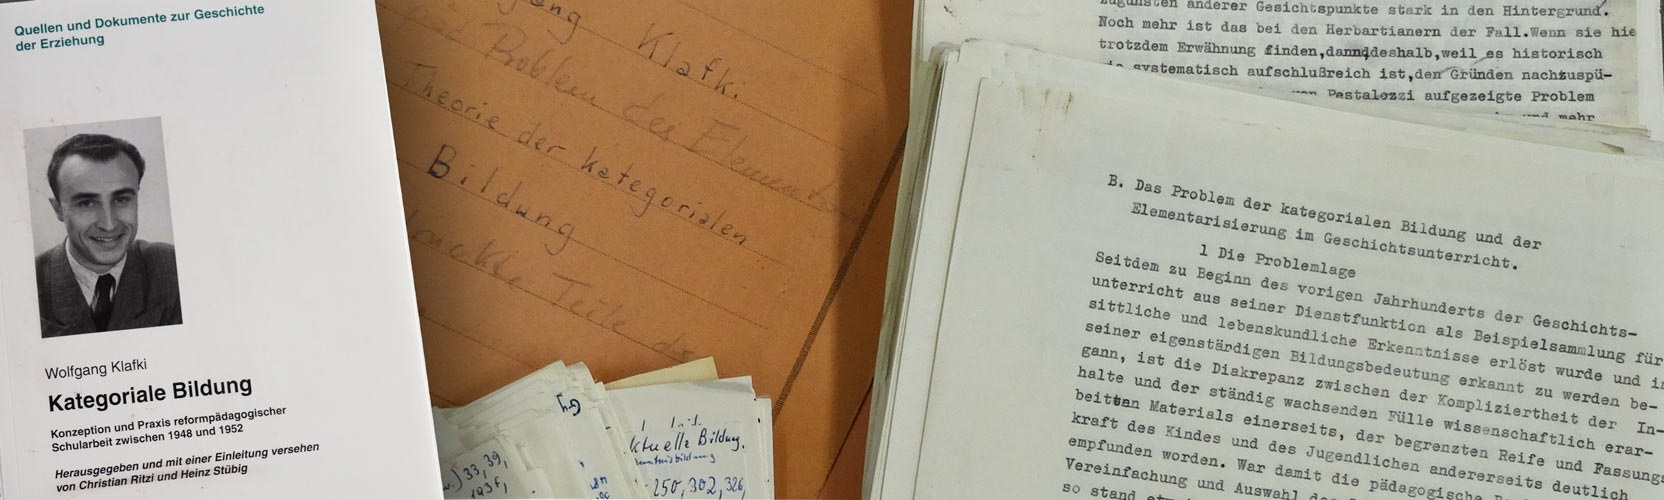 Quellen und Dokumente zur Geschichte
der Erziehung
Wolfgang Klafki
Kategoriale Bildung
Konzeption und Praxis reformpädagogischer
Schularbeit zwischen 1948 und 1952
Herausgegeben und mit einer Einleitung versehen
von Christian Ritzi und Heinz Stübig
Klafki.
Problem des
Theorie der kategorialen
Bildung
Teile
33, 39,
ktuelle Bildung.
250, 302, 326,
anderer Gesichtspunkte stark in den Hintergrund.
Noch mehr ist das bei den Herbartianern der Fall.Wenn sie hie
trotzdem Erwähnung finden,dann deshalb,weil es historisch
systematisch aufschlußreich ist,den Gründen nachzuspü-
Pestalozzi aufgezeigte Problem
und mehr
B. Das Problem der kategorialen Bildung und der
Elementarisierung im Geschichtsunterricht.
1 Die Problemlage
Seitdem zu Beginn des vorigen Jahrhunderts der Geschichts-
unterricht aus seiner Dienstfunktion als Beispielsammlung für
sittliche und lebenskundliche Erkenntnisse erlöst wurde und in
seiner eigenständigen Bildungsbedeutung erkannt zu werden be-
gann, ist die Diskrepanz zwischen der Kompliziertheit der In-
halte und der ständig wachsenden Fülle wissenschaftlich erar-
beiteten Materials einerseits, der begrenzten Reife und Fassungs
kraft des Kindes und des Jugendlichen andererseits deutlich
empfunden worden. War damit die pädagogische
Vereinfachung und Auswahl
so stand